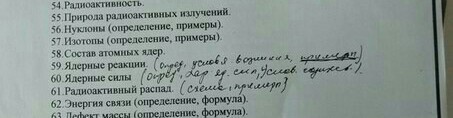 54.Радиоактивность.
55.Природа радиоактивных излучений.
56.Нуклоны (определение, примеры).
57.Изотопы (определение, примеры).
58.Состав атомных ядер.
59.Ядерные реакции. (опред, условия примеры)
60.Ядерные силы (опред,
61.Радиоактивный распад. (схема, примеры)
62.Энергия связи (определение, формула).
63.Дефект массы (определение, формула).